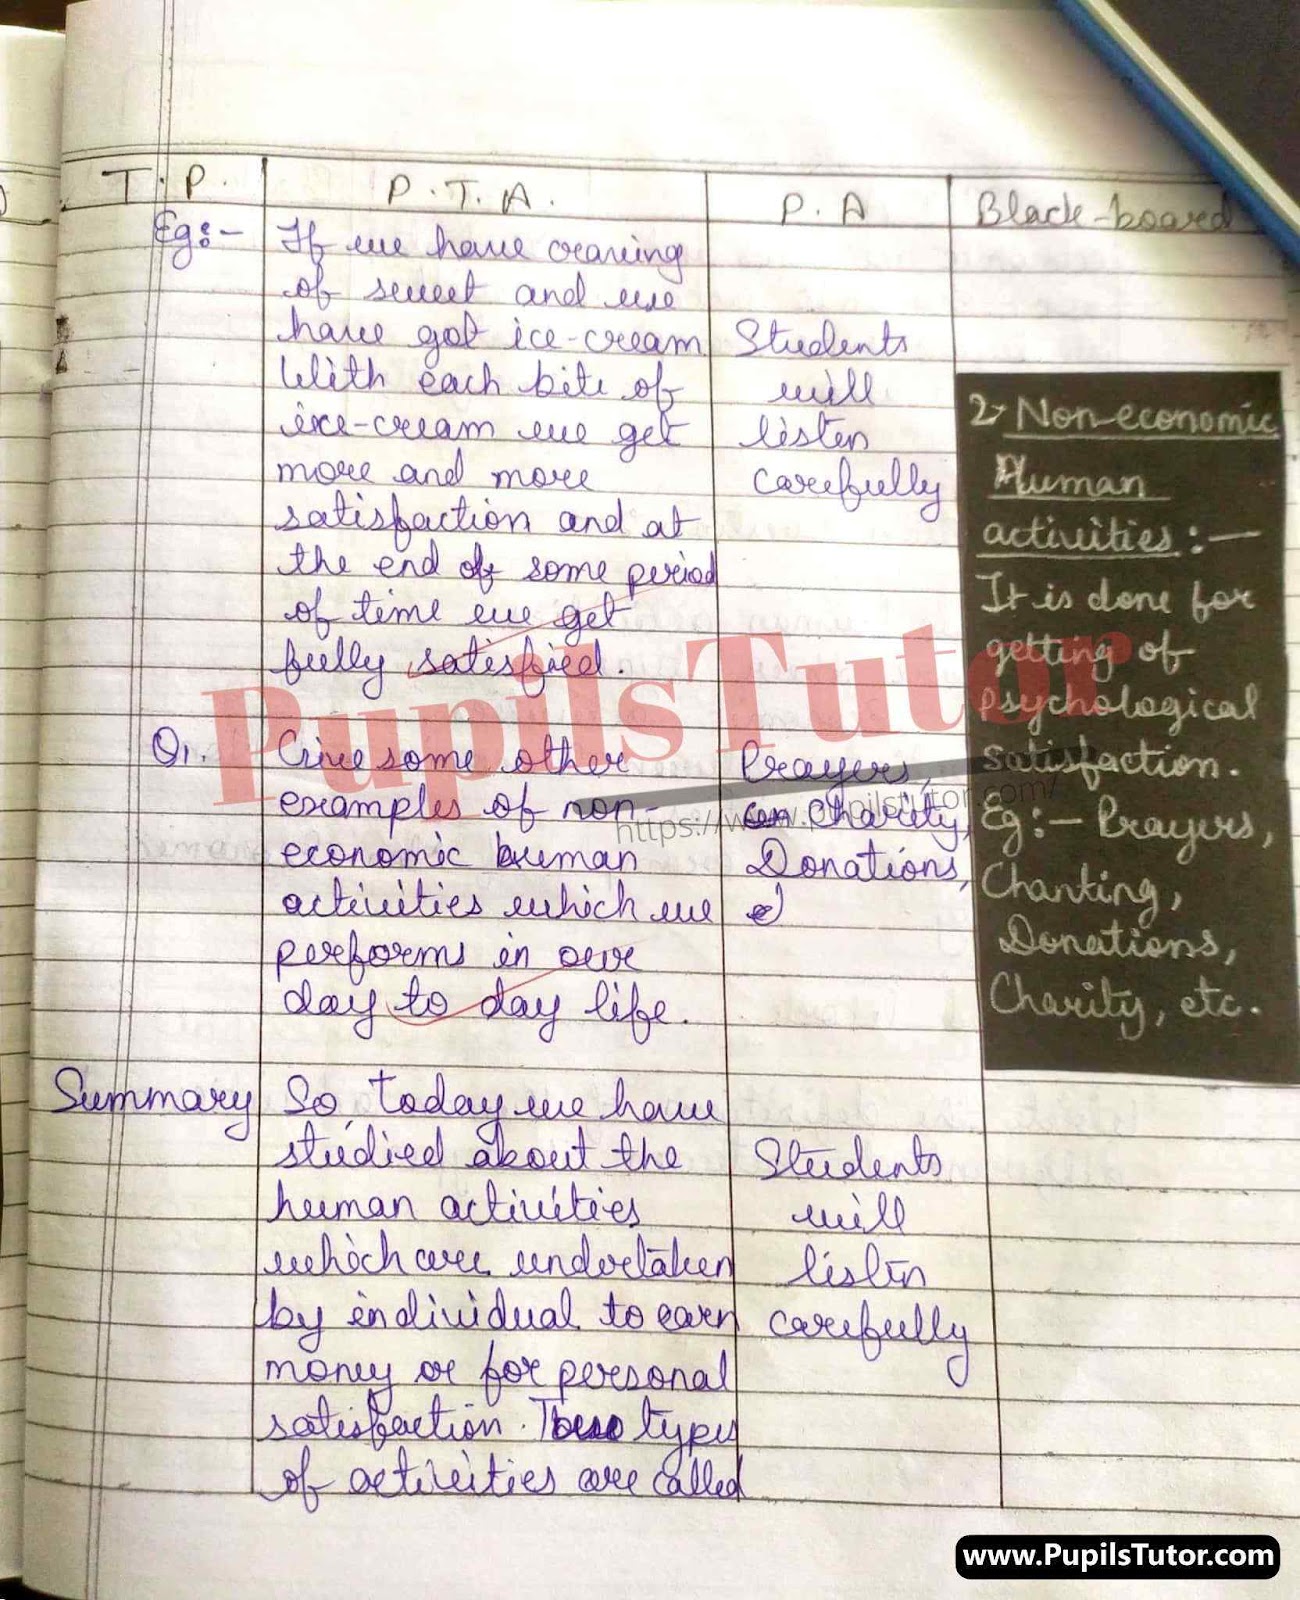 T.P.
P.T.A.
P.A
Black-board
Eg:-
If we have craving
of sweet and we
have got ice-cream
With each bite of
ice-cream we get
more and more
satisfaction and at
the end of some period
of time we get
fully satisfied.
Students
will
listen
carefully
2. Non-economic
Human
activities :-
It is done for
getting of
psychological
satisfaction.
Eg:- Prayers,
Chanting,
Donations,
Charity, etc.
Q1.
Give some other
examples of non-
economic human
activities which we
performs in our
day to day life.
Prayers,
Charity,
Donations,
Summary
So, today we have
studied about the
human activities
which are undertaken
by individual to earn
money or for personal
satisfaction. These types
of activities are called
Students
will
listen
carefully
PupilsTutor
https://www.pupilstutor.com/
www.PupilsTutor.com